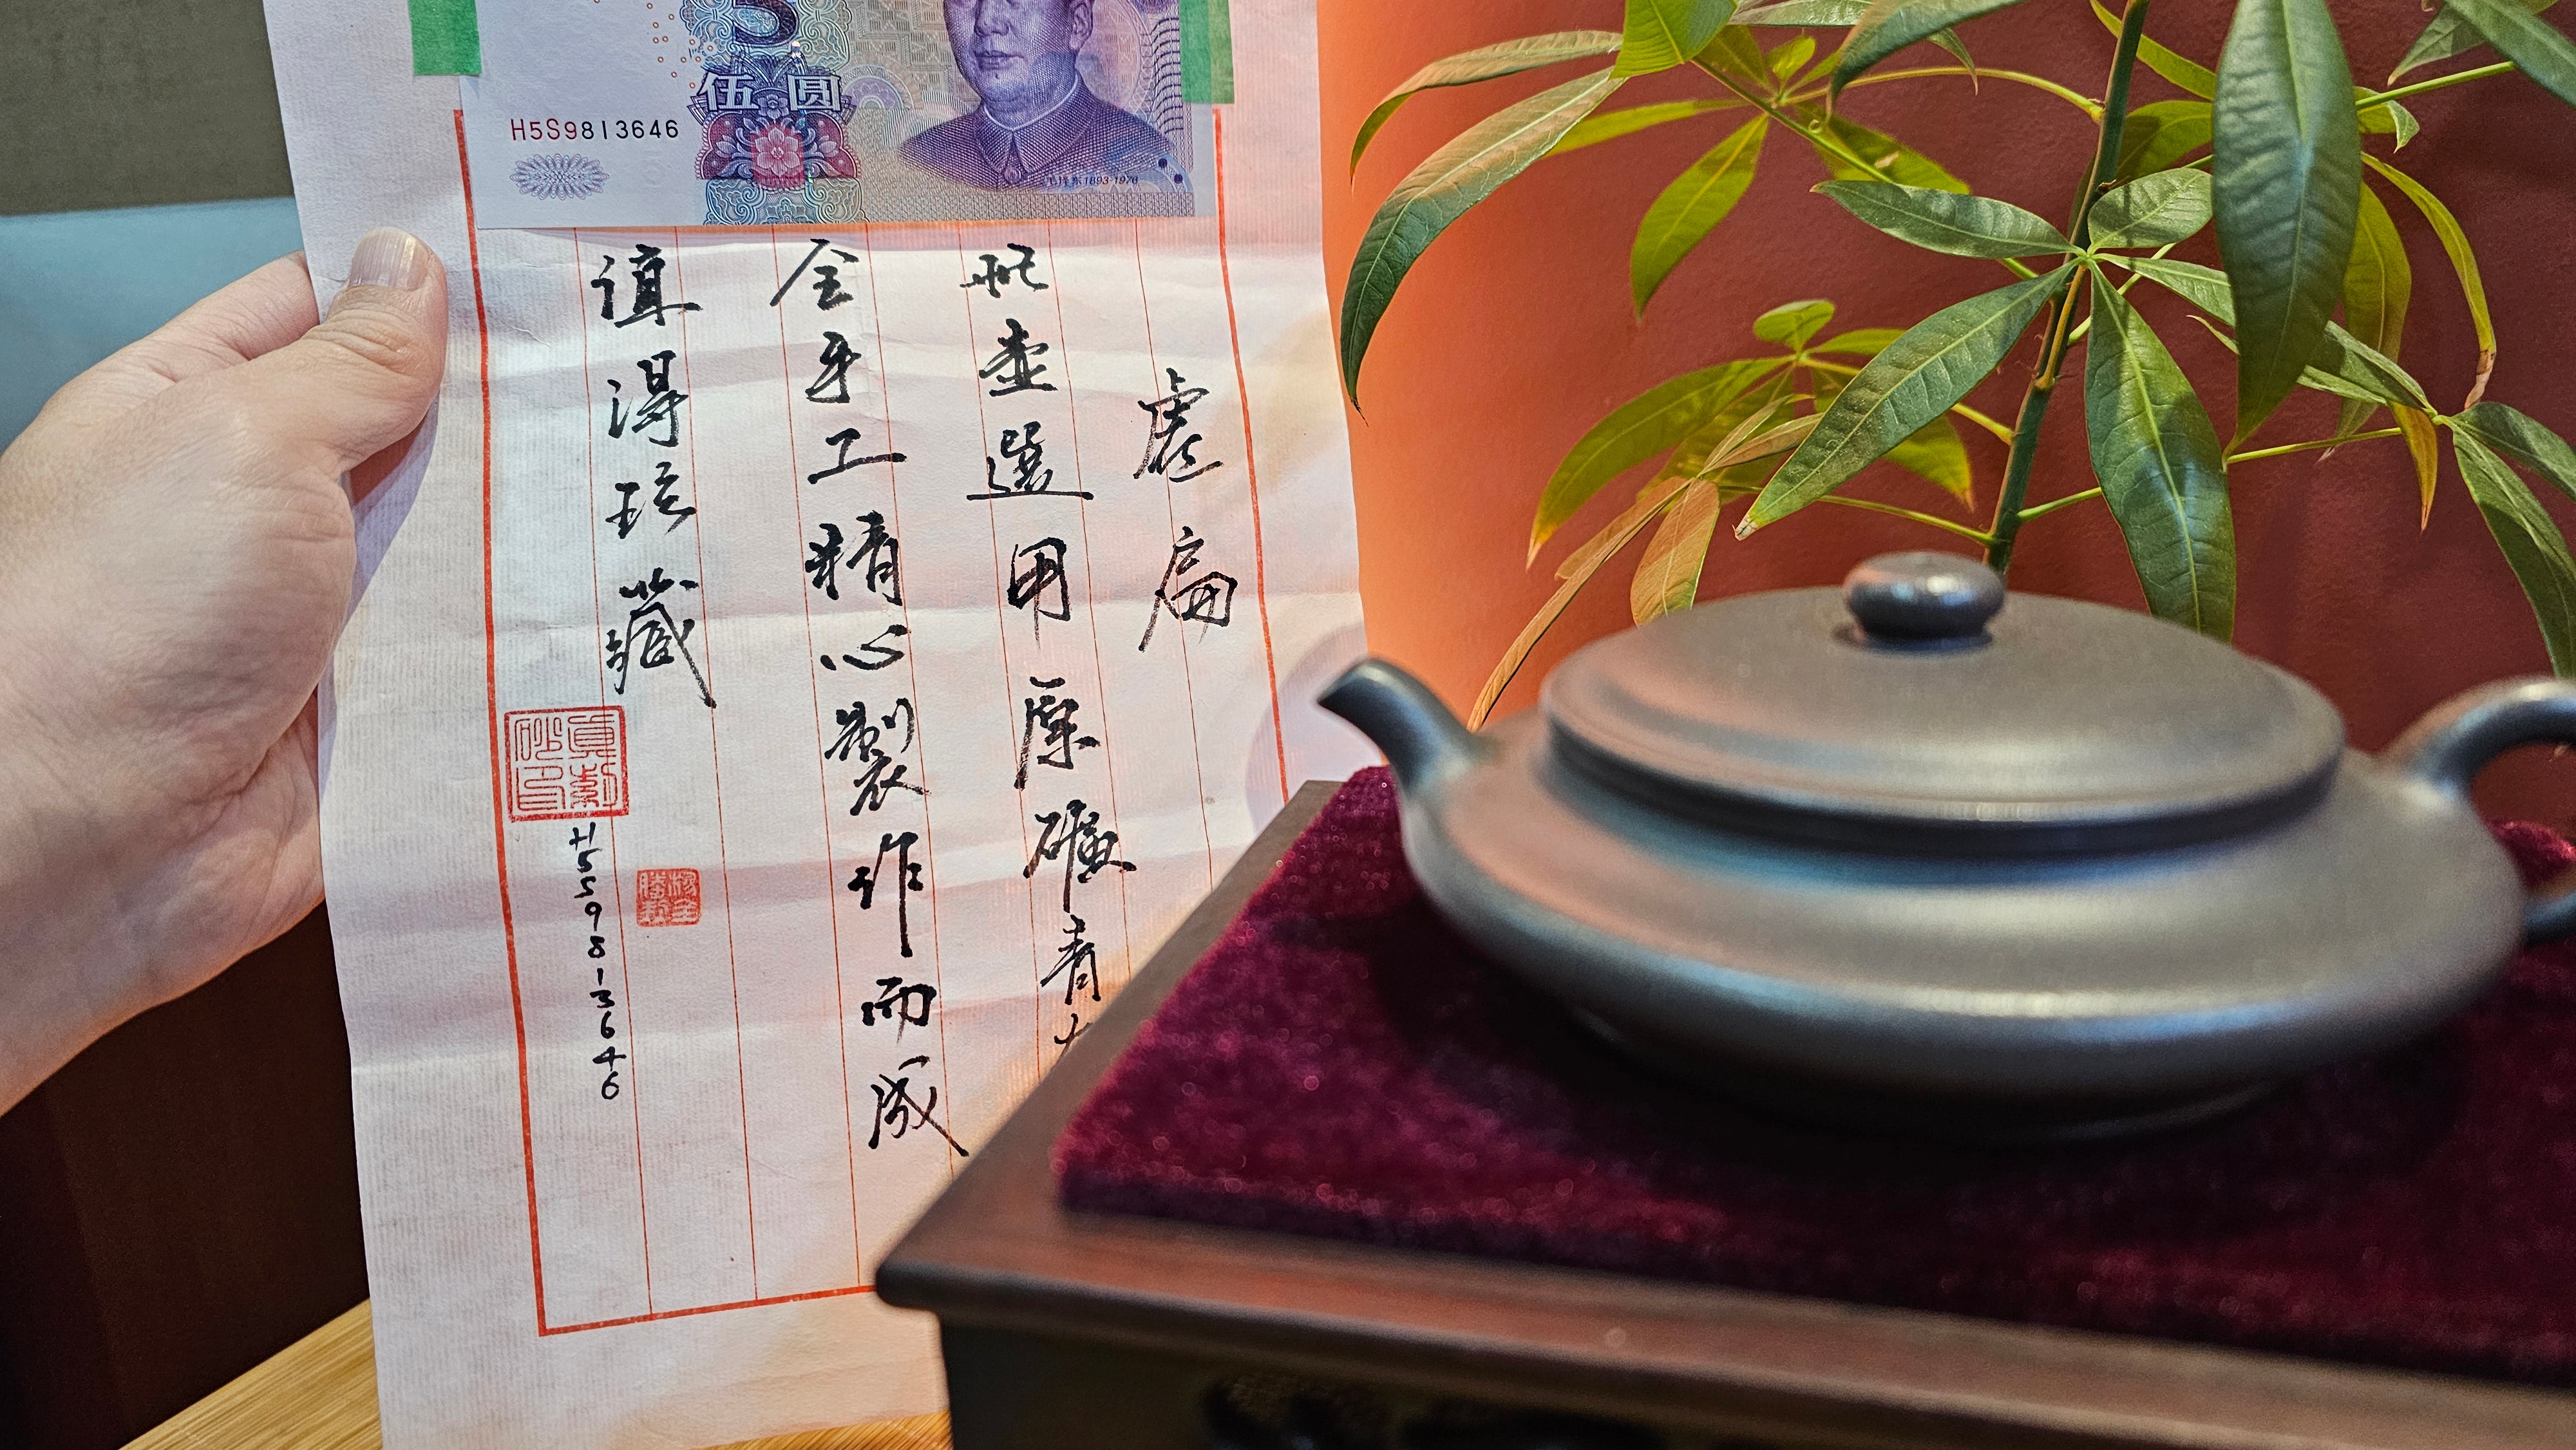 伍圆
H5S9813646
毛泽东1893-1976
虚扁
此壶選用原礦青
全手工精心製作而成
值得珍藏
H5S9813646